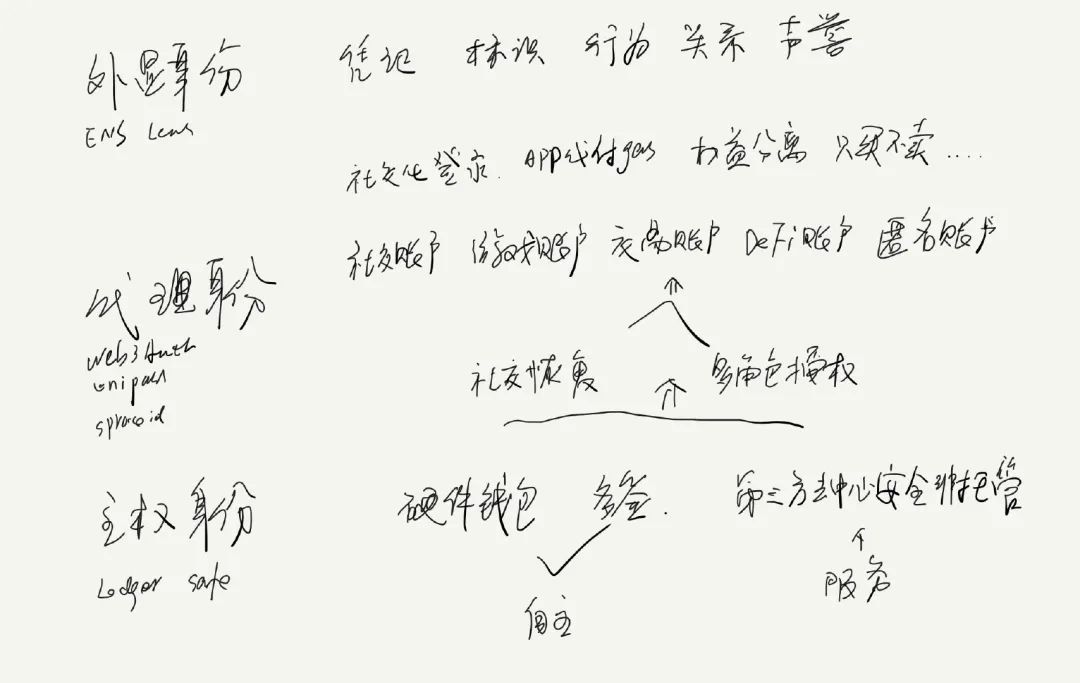 外显身份 凭记 标识 行为 关系 声誉
ENS Lens
社交化登录. APP代付gas 权益分离 只买不卖....
社交账户 游戏账户 交易账户 DeFi账户 匿名账户
代理身份
Web3Auth
unipass
社交恢复 多角色授权
主权身份 硬件钱包 多签. 第三方去中心安全非托管
Ledger safe
服务
自主